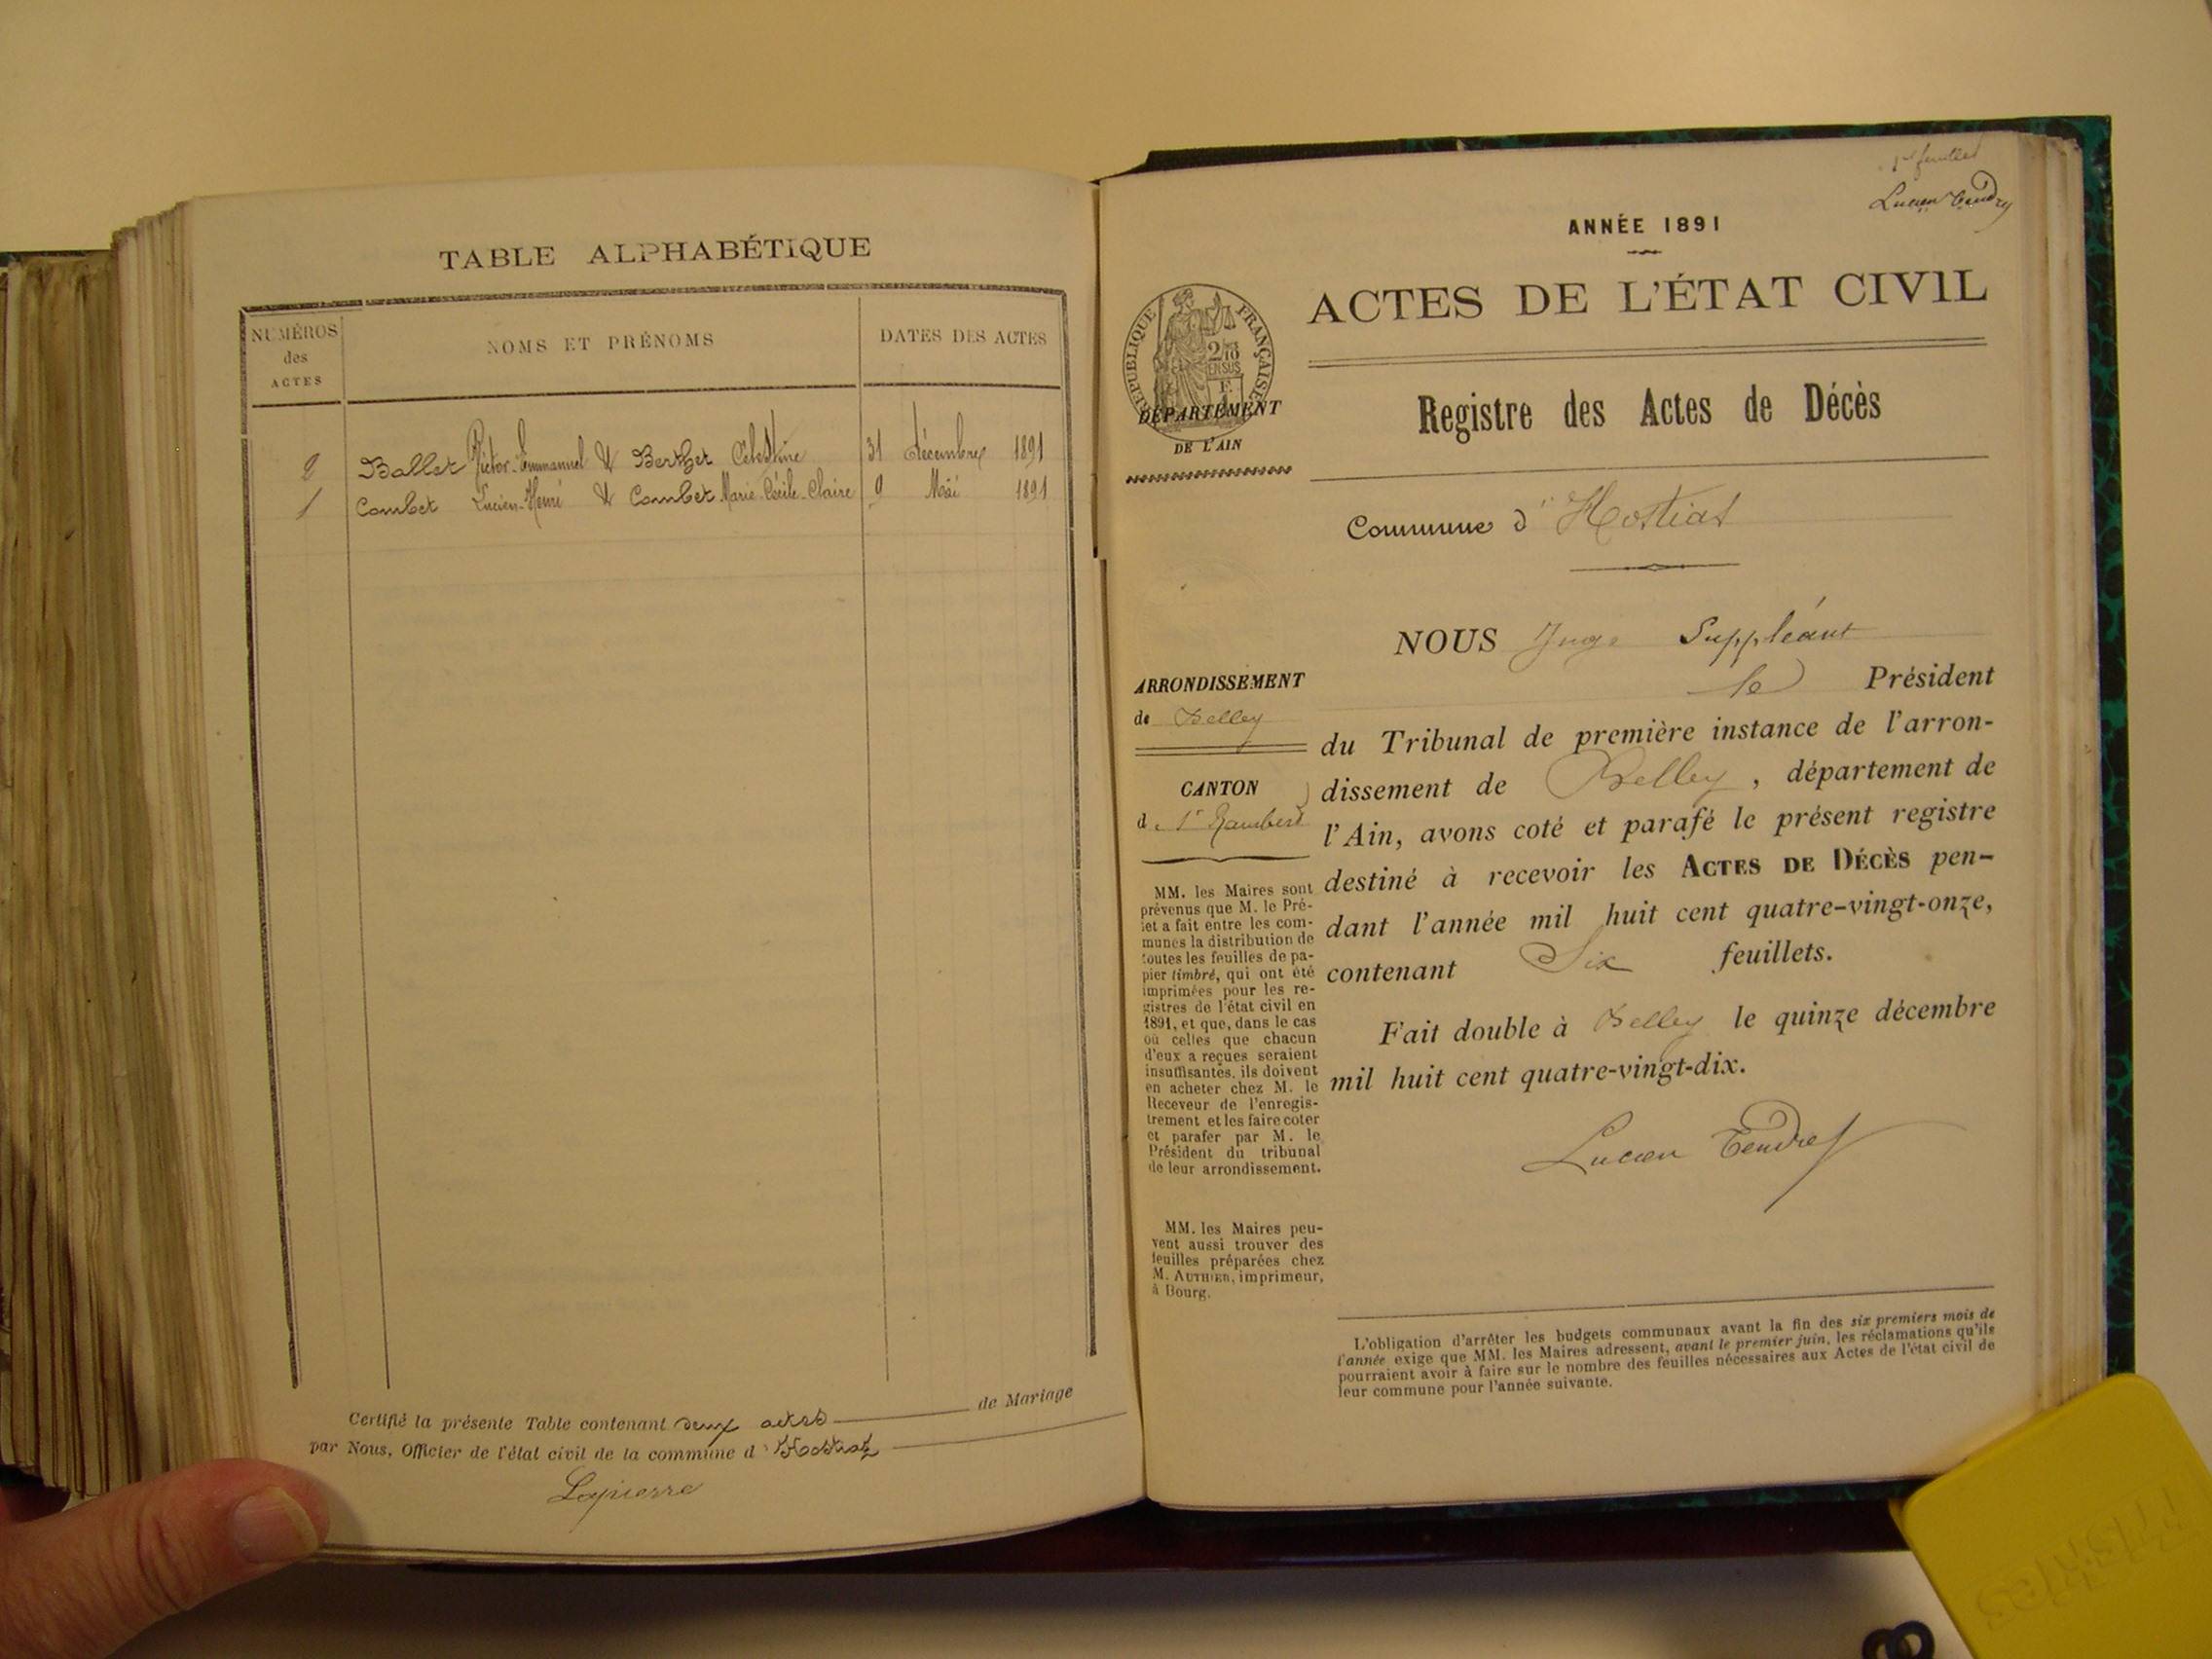 TABLE ALPHABÉTIQUE
NUMÉROS
des
ACTES
NOMS ET PRÉNOMS
DATES DES ACTES
2 Ballet Victor-Emmanuel & Berthet Célestine 31 décembre 1891
1 Combet Lucien-Henri & Combet Marie-Cécile-Claire 9 Mai 1891
Certifié la présente Table contenant deux actes de Mariage
par Nous, Officier de l'état civil de la commune d'Hostiaz
Lapierre
1er feuillet
Lucien Tendret
ANNÉE 1891
ACTES DE L'ÉTAT CIVIL
RÉPUBLIQUE FRANÇAISE
DÉPARTEMENT
DE L'AIN
Registre des Actes de Décès
Commune d'Hostias
ARRONDISSEMENT
de Belley
CANTON
de St Rambert
MM. les Maires sont
prévenus que M. le Pré-
fet a fait entre les com-
munes la distribution de
toutes les feuilles de pa-
pier timbré, qui ont été
imprimées pour les re-
gistres de l'état civil en
1891, et que, dans le cas
où celles que chacun
d'eux a reçues seraient
insuffisantes, ils doivent
en acheter chez M. le
Receveur de l'enregis-
trement et les faire coter
et parafer par M. le
Président du tribunal
de leur arrondissement.
MM. les Maires peu-
vent aussi trouver des
feuilles préparées chez
M. AUTHIER, imprimeur,
à Bourg.
NOUS Juge Suppléant
le Président
du Tribunal de première instance de l'arron-
dissement de Belley, département de
l'Ain, avons coté et parafé le présent registre
destiné à recevoir les ACTES DE DÉCÈS pen-
dant l'année mil huit cent quatre-vingt-onze,
contenant Six feuillets.
Fait double à Belley le quinze décembre
mil huit cent quatre-vingt-dix.
Lucien Tendret
L'obligation d'arrêter les budgets communaux avant la fin des six premiers mois de
l'année exige que MM. les Maires adressent, avant le premier juin, les réclamations qu'ils
pourraient avoir à faire sur le nombre des feuilles nécessaires aux Actes de l'état civil de
leur commune pour l'année suivante.